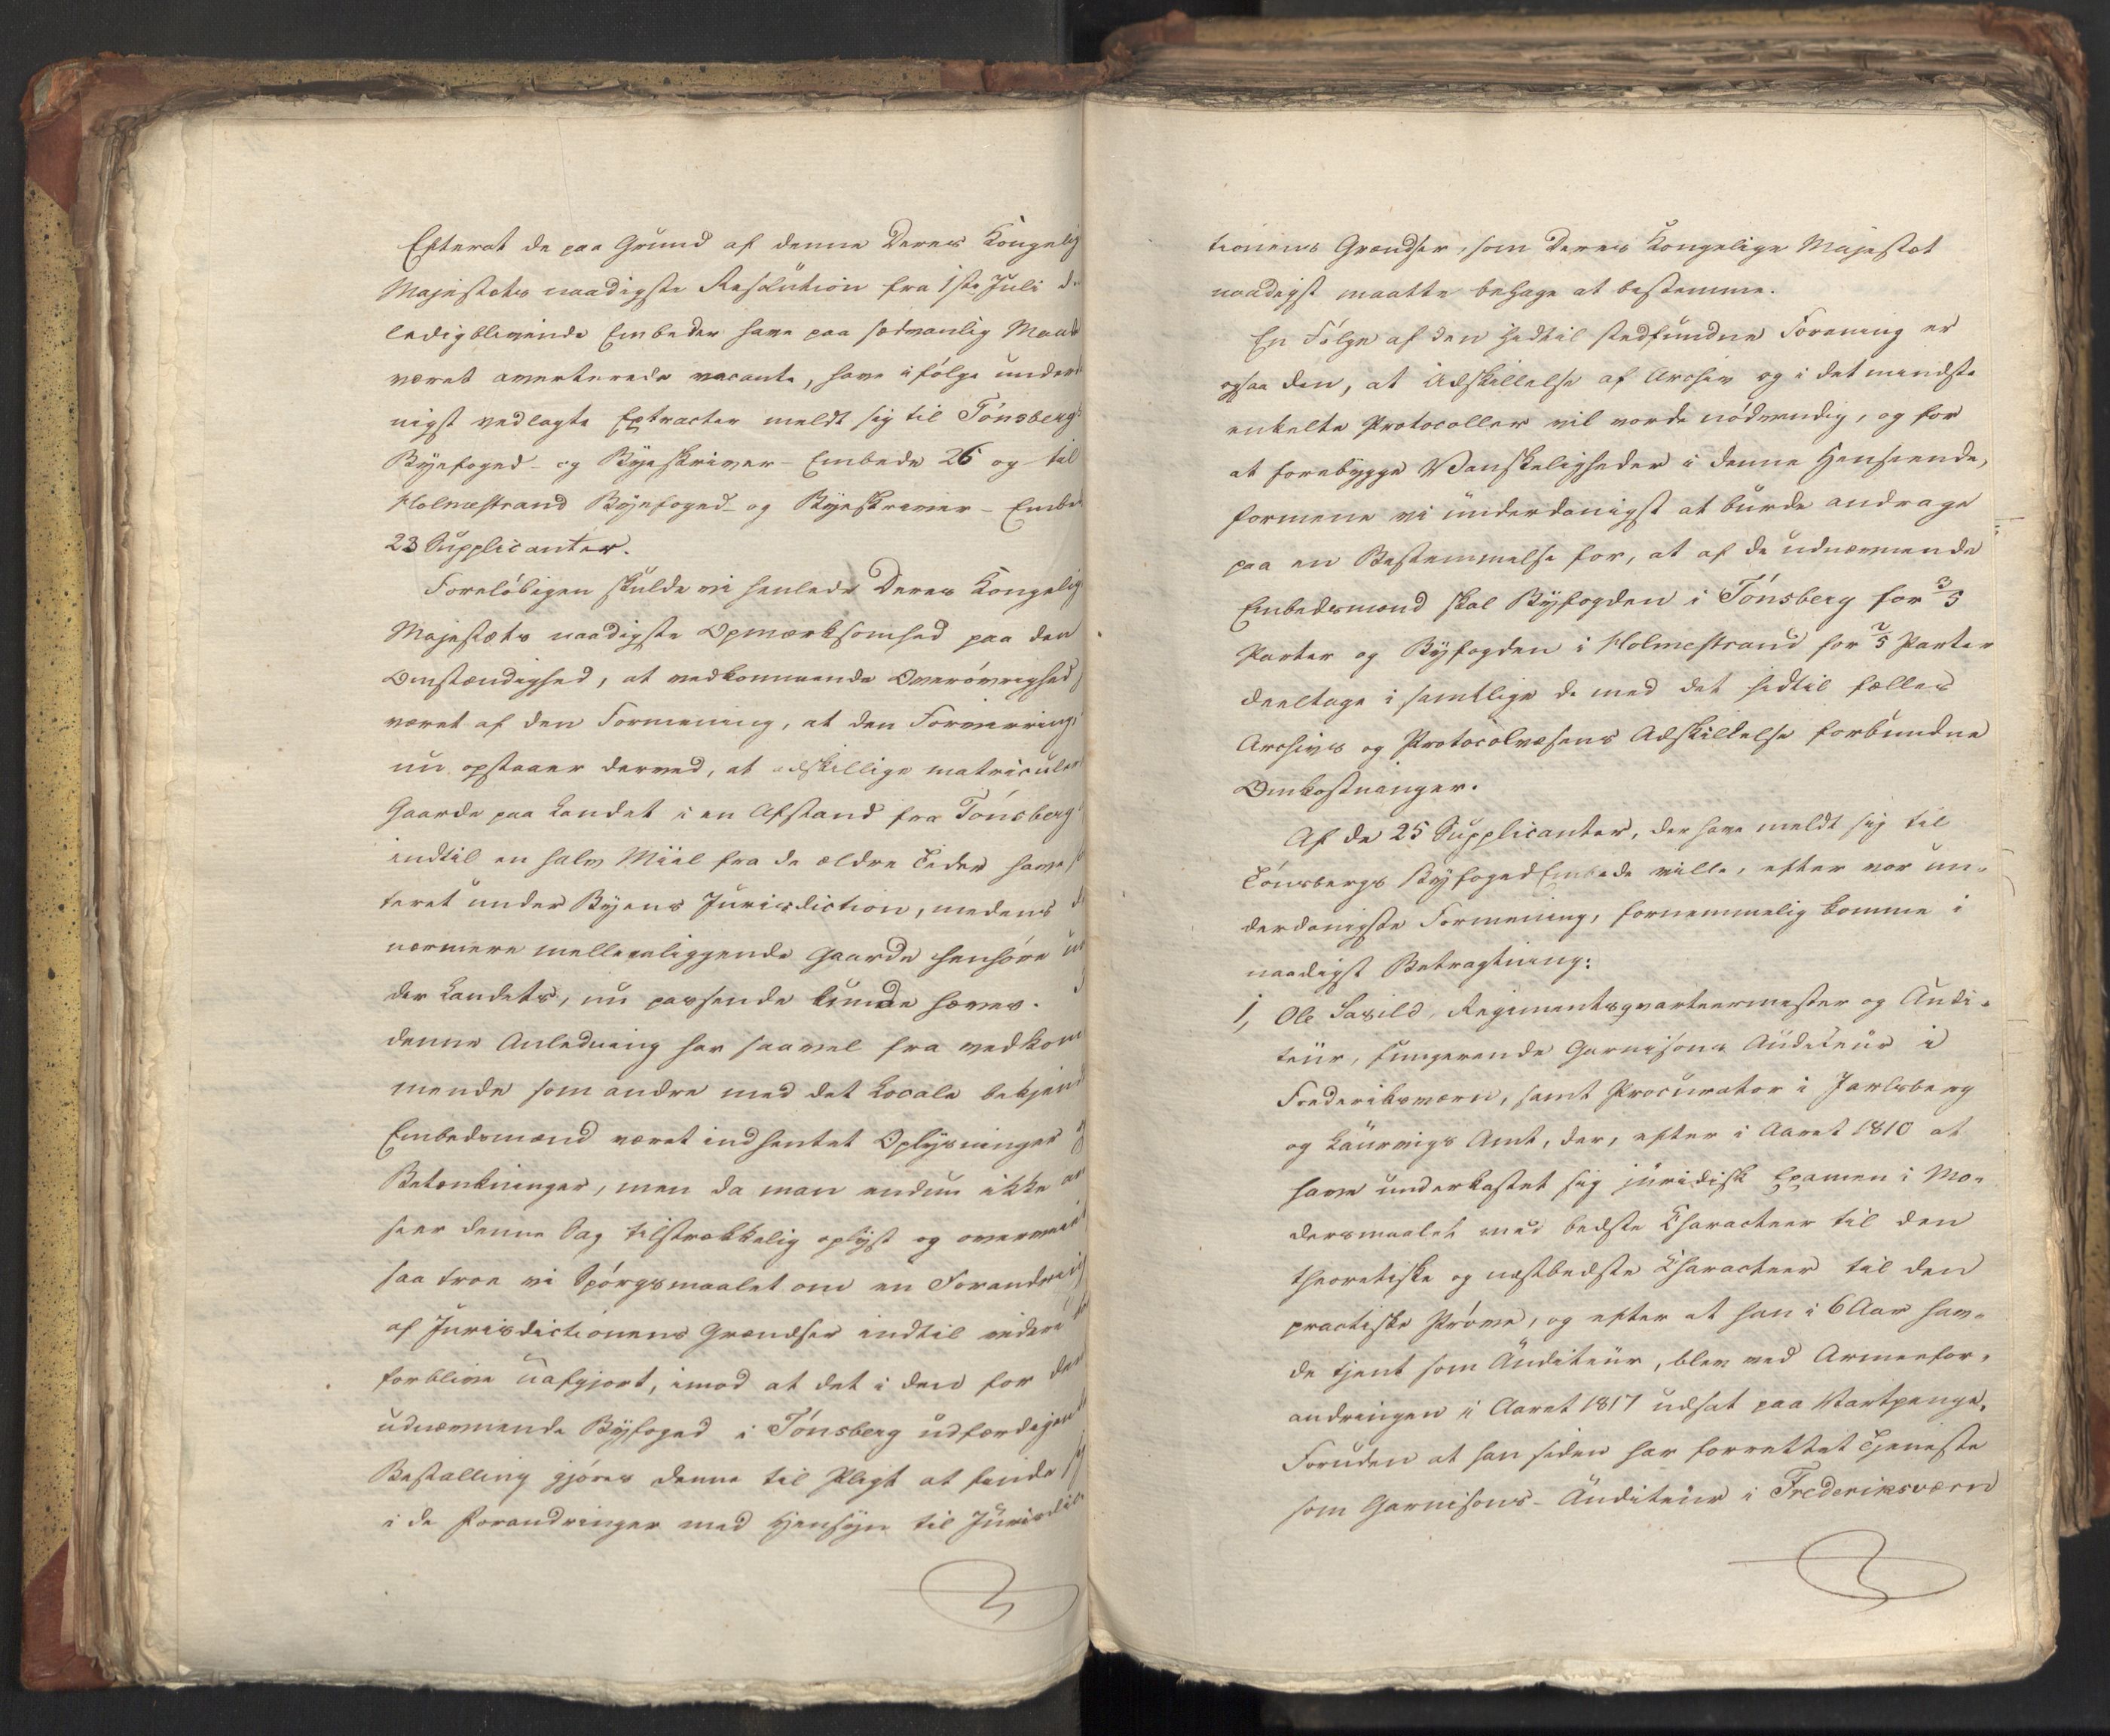 Efterat de paa Grund af denne Deres Kongelig
Majestæts naadigste Resolution fra 1ste Juli d.
ledigblevende Embeder have paa sædvanlig Maade
været averterede vacante, have ifølge underd
nigst vedlagte Extracter meldt sig til Tønsbergs
Byefoged- og Byeskriver-Embede 26 og til
Holmestrand Byefoged- og Byeskriver-Embe
23 Supplicanter.
Foreløbigen skulde vi henlede Deres Kongelig
Majestæts naadigste Opmærksomhed paa den
Omstændighed, at vedkommende Overøvrighed
været af den Formening, at den Forvirring,
nu opstaaer derved, at adskillige matriculer
Gaarde paa Landet i en Afstand fra Tønsberg
indtil en halv Miil fra de ældre Tider have so
teret under Byens Jurisdiction, medens d
nærmere mellemliggende Gaarde henhøre un
der Landets, nu passende kunde hæves. I
denne Anledning har saavel fra vedkom
mende som andre med det Locale bekjend
Embedsmænd været indhentet Oplysninger og
Betænkninger, men da man endnu ikke an
seer denne Sag tilstrækkelig oplyst og overveiet
saa troe vi Spørgsmaalet om en Forandring
af Jurisdictionens Grændser indtil videre bør
forblive uafgjort, imod at det i den for den
udnævnende Byfoged i Tønsberg udfærdigende
Bestalling gjøres denne til Pligt at finde sig
i de Forandringer med Hensyn til Jurisdic
tionens Grændser, som Deres Kongelige Majestæt
naadigst maatte behage at bestemme.
En Følge af den hidtil stedfundne Forening er
ogsaa den, at Adskillelse af Archiv og i det mindste
enkelte Protocoller vil vorde nødvendig, og for
at forebygge Vanskeligheder i denne Henseende,
formene vi underdanigst at burde andrage
paa en Bestemmelse for, at af de udnævnende
Embedsmænd skal Byfogden i Tønsberg for 3/5
Parter og Byfogden i Holmestrand for 2/5 Parter
deeltage i samtlige de med det hidtil fælles
Archivs og Protocolvæsens Adskillelse forbundne
Omkostninger.
Af de 25 Supplicanter, der have meldt sig til
Tønsbergs Byfoged Embede ville, efter vor un-
derdanigste Formening, fornemmelig komme i
naadigst Betragtning:
1, Ole Lasild, Regimentsqvarteermester og Audi-
teur, fungerende Garnisons Auditeur i
Frederiksværn, samt Procurator i Jarlsberg
og Laurvigs Amt, der, efter i Aaret 1810 at
have underkastet sig juridisk Examen i Mo-
dersmaalet med bedste Characteer til den
theoretiske og næstbedste Characteer til den
practiske Prøve, og efter at han i 6 Aar hav-
de tjent som Auditeur, blev ved Armeefor-
andringen i Aaret 1817 udsat paa Vartpenge.
Foruden at han siden har forrettet Tjeneste
som Garnisons-Auditeur i Frederiksværn